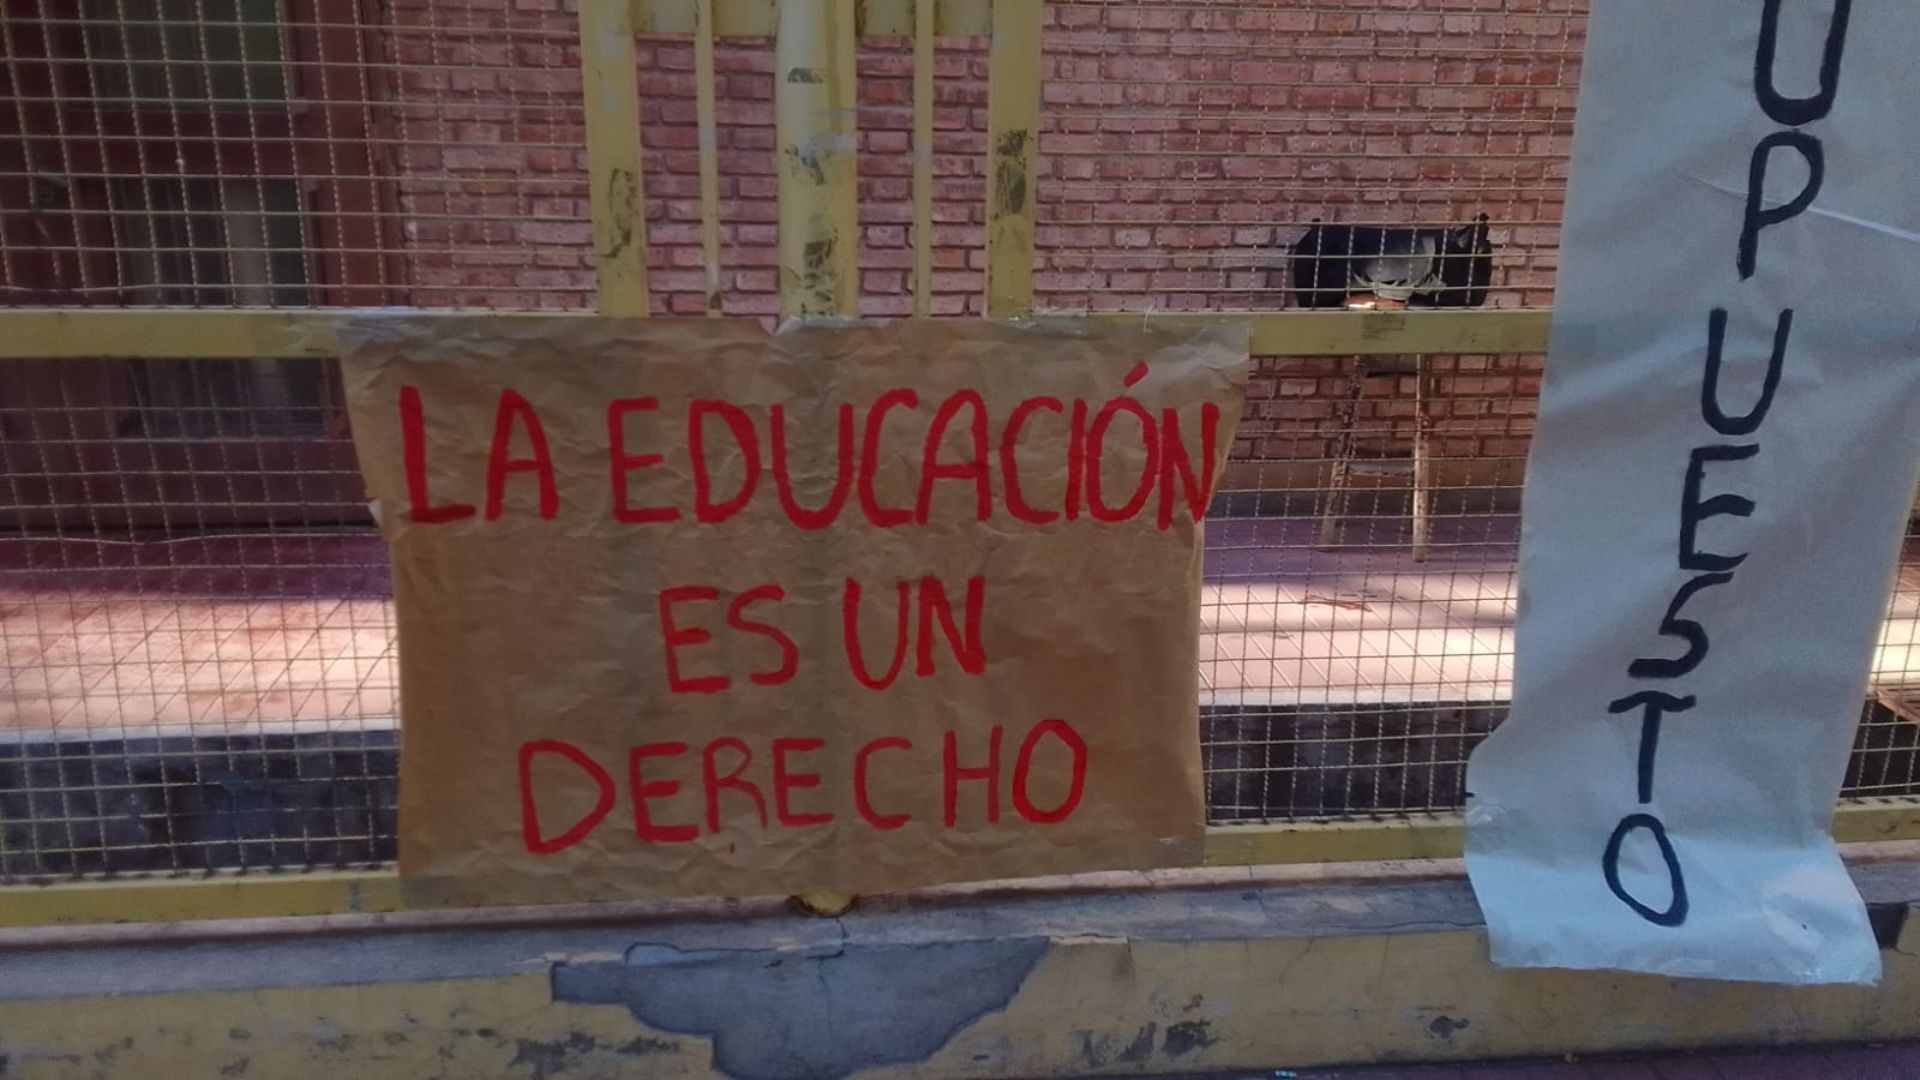 LA EDUCACIÓN
ES UN
DERECHO
UPUESTO